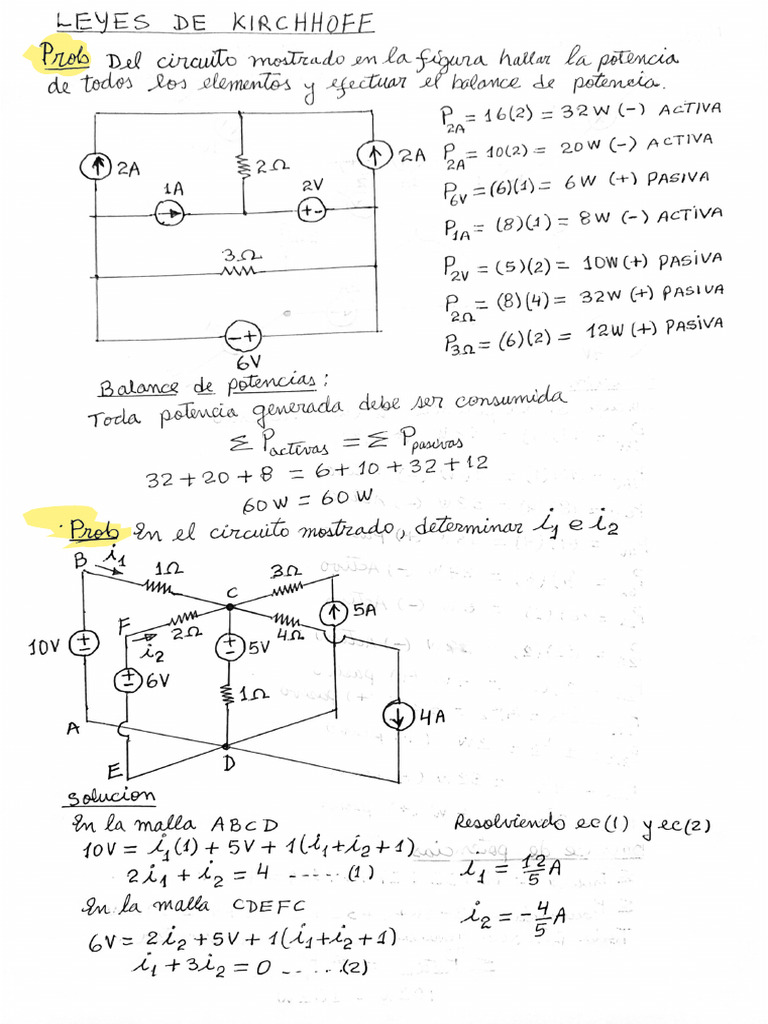 LEYES DE KIRCHHOFF
Prob Del circuito mostrado en la figura hallar la potencia
de todos los elementos y efectuar el balance de potencia.
2A
2Ω
2A
1A
2V
3Ω
6V
P2A = 16(2) = 32W (-) ACTIVA
P2A = 10(2) = 20W (-) ACTIVA
P6V = (6)(1) = 6W (+) PASIVA
P1A = (8)(1) = 8W (-) ACTIVA
P2V = (5)(2) = 10W (+) PASIVA
P2Ω = (8)(4) = 32W (+) PASIVA
P3Ω = (6)(2) = 12W (+) PASIVA
Balance de potencias:
Toda potencia generada debe ser consumida
Σ Pactivas = Σ Ppasivas
32 + 20 + 8 = 6 + 10 + 32 + 12
60W = 60W
Prob En el circuito mostrado, determinar i1 e i2
B i1 1Ω C 3Ω
5A
F 2Ω 4Ω
10V i2 5V
6V 1Ω
4A
A
D
E
Solucion
En la malla ABCD
10V = i1(1) + 5V + 1(i1+i2+1)
2i1 + i2 = 4 ----- (1)
En la malla CDEFC
6V = 2i2 + 5V + 1(i1+i2+1)
i1 + 3i2 = 0 ----- (2)
Resolviendo ec(1) y ec(2)
i1 = 12/5 A
i2 = -4/5 A